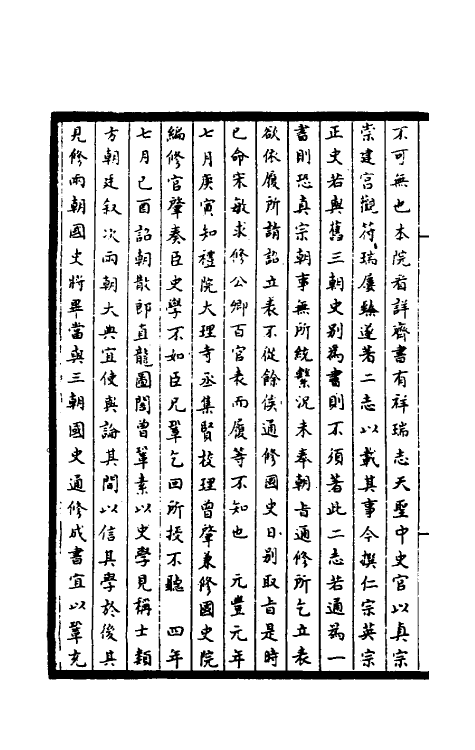 不可無也本院看詳齊書有祥瑞志天聖中史官以真宗
崇建宮觀符瑞屢臻遂著二志以載其事今撰仁宗英宗
正史若與舊三朝史別為書則不須著此二志若通為一
書則恐真宗朝事無所統繫況未奉朝㫖通修所乞立表
欲依履所請詔立表不從餘俟通修國史日別取㫖是時
已命宋敏求修公卿百官表而履等不知也　元豐元年
七月庚寅知禮院大理寺丞集賢校理曾肇兼修國史院
編修官肇奏臣史學不如臣兄鞏乞回所授不聽　四年
七月己酉詔朝散郎直龍圖閣曾鞏素以史學見稱士類
方朝廷敘次兩朝大典宜使與論其間以信其學於後其
見修兩朝國史將畢當與三朝國史通修成書宜以鞏充